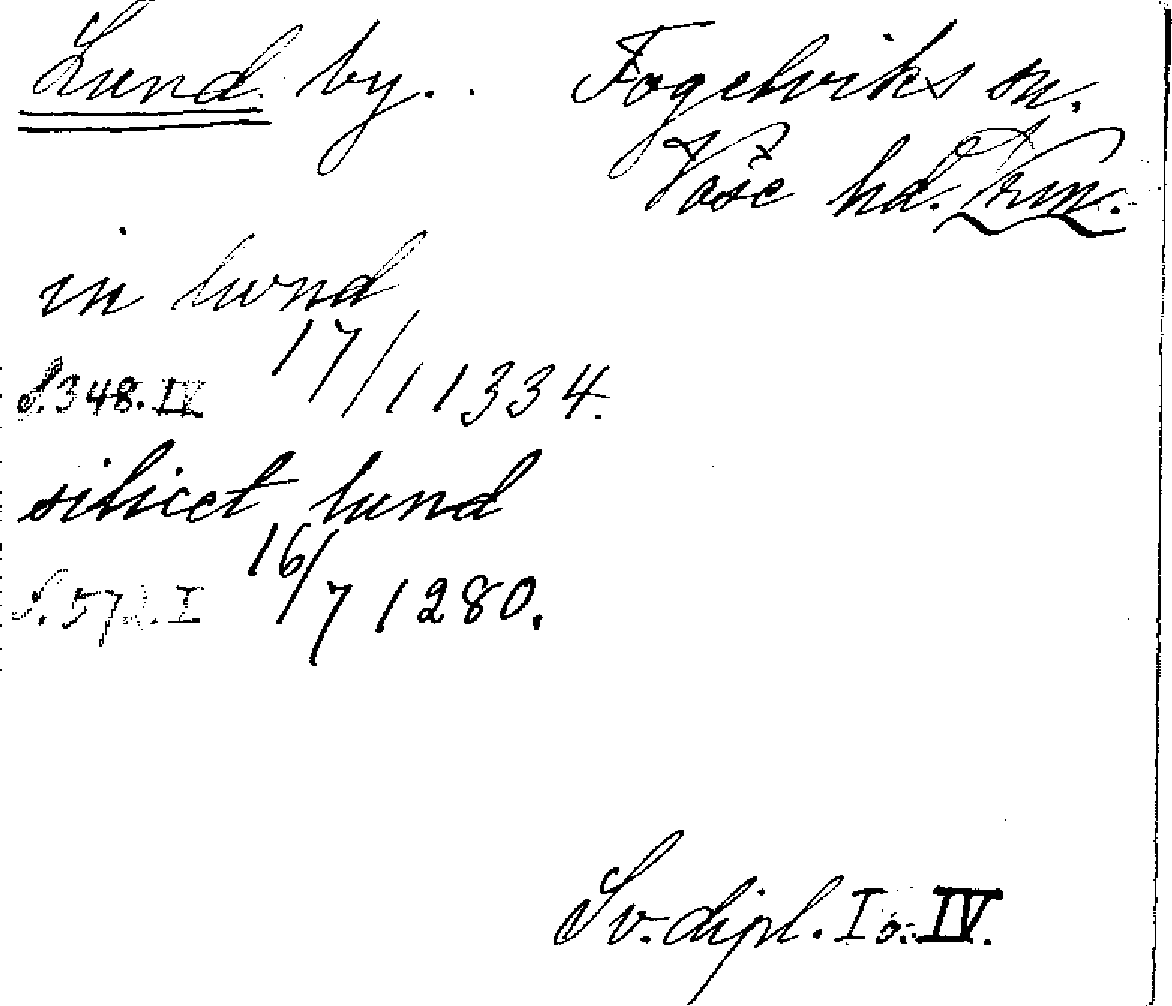 Lund by. Fogelviks sn.
Väse hd. Vrm.
in lwnd
S.348.IV 17/1 1334.
silicet lund
S.572.I 16/7 1280.
Sv. dipl. I o. IV.